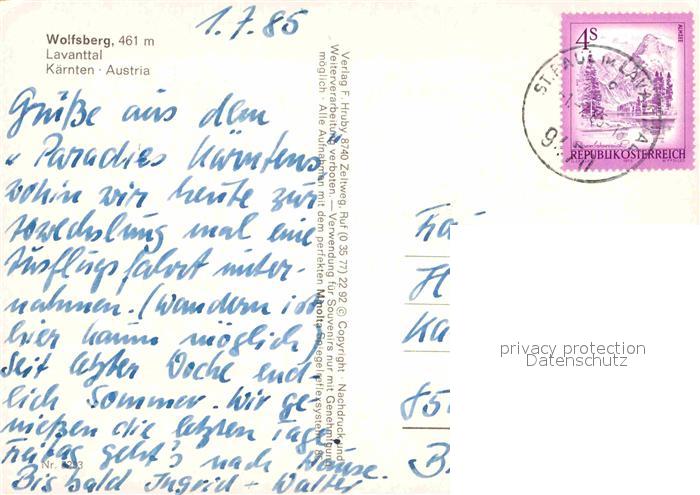 1.7.85
Wolfsberg, 461 m
Lavanttal
Kärnten · Austria
Grüße aus dem
"Paradies Kärntens
wohin wir heute zur
Abwechslung mal eine
Ausflugsfahrt unter-
nahmen. (Wandern ist
hier kaum möglich)
Seit letzter Woche end-
lich Sommer. Wir ge-
nießen die letzten Tage.
Freitag geht's nach Hause.
Bis bald Ingrid + Walter
Nr.
Verlag F. Hruby 8740 Zeltweg, Ruf (0 35 77) 22 92 © Copyright · Nachdruck und
Weiterverarbeitung verboten. — Verwendung für Souvenirs nur mit Genehmigung
möglich · Alle Aufnahmen mit dem perfekten Minolta-Spiegelreflexsystem
4S
ALMSEE
REPUBLIK ÖSTERREICH
ST. PAUL IM LAVANTTAL
Fa
H
Ka
85
B
privacy protection
Datenschutz